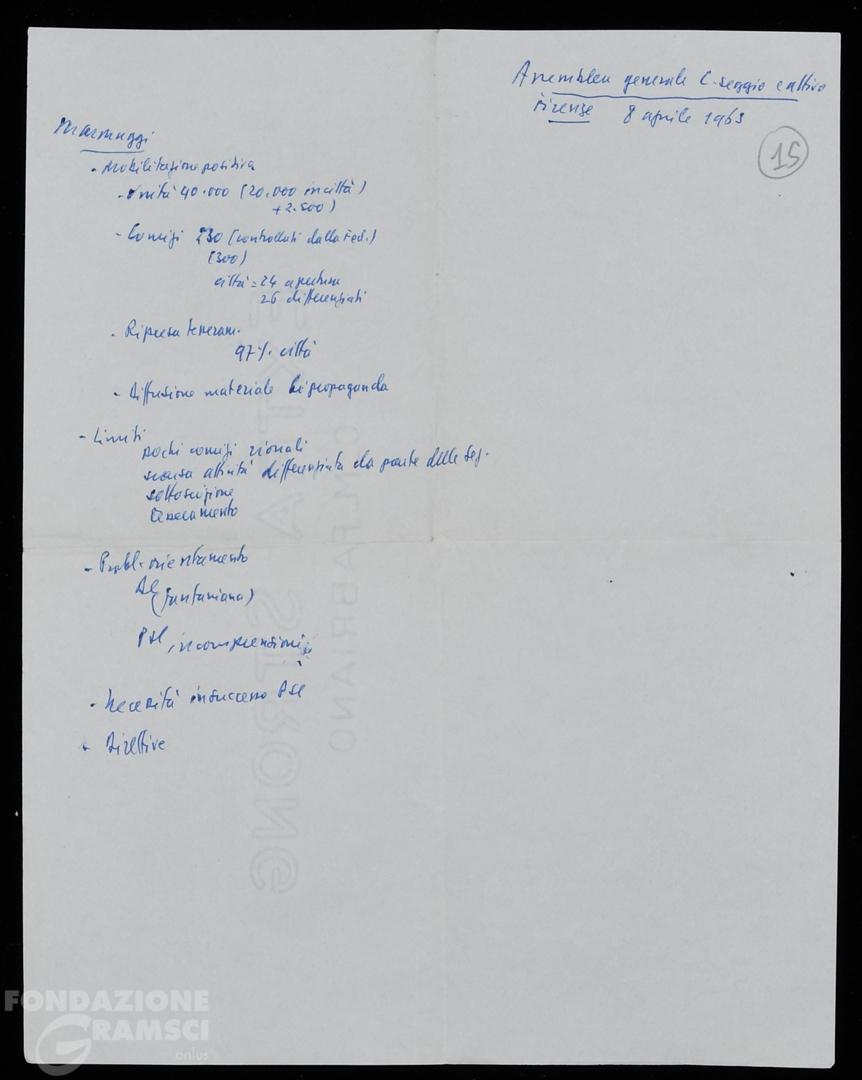 Assemblea generale C. seggio e attivo
Firenze 8 aprile 1963
15
Marmuggi
- Mobilitazione positiva
- Unità 40.000 (20.000 in città)
+2.500)
- Comizi 230 (controllati dalla Fed.)
(300)
città = 24 apertura
26 differenziati
- Ripresa tesseram.
97% città
- Diffusione materiale di propaganda
- Limiti
pochi comizi rionali
scarsa attività differenziata da parte delle sez.
sottoscrizione
tesseramento
- Probl. orientamento
DC (fanfaniana)
PSI, incomprensioni
- Necessità insuccesso PSI
- Direttive
EXTRA STRONG
C. M. FABRIANO
FONDAZIONE
GRAMSCI
onlus